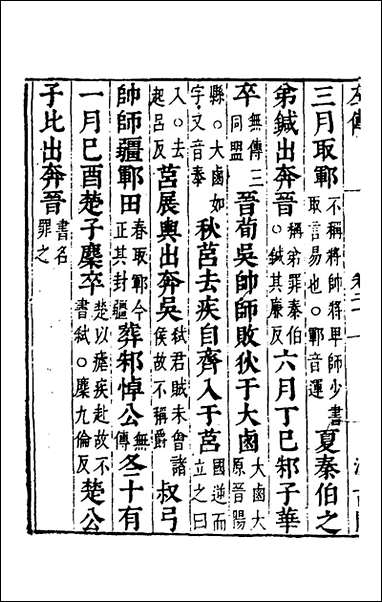 三月取鄆不稱將帥將卑師少書取言易也○鄆音運夏秦伯之
弟鍼出奔晉稱弟罪秦伯○鍼其廉反六月丁巳邾子華
卒無傳三同盟晉荀吳帥師敗狄于大鹵大鹵大原晉陽
縣○大鹵如字又音泰秋莒去疾自齊入于莒國逆而立之曰
入○去起呂反莒展輿出奔吳弒君賊未會諸侯故不稱爵叔弓
帥師疆鄆田春取鄆今正其封疆葬邾悼公無傳冬十有
一月己酉楚子麇卒楚以瘧疾赴故不書弒○麇九倫反楚公
子比出奔晉書名罪之